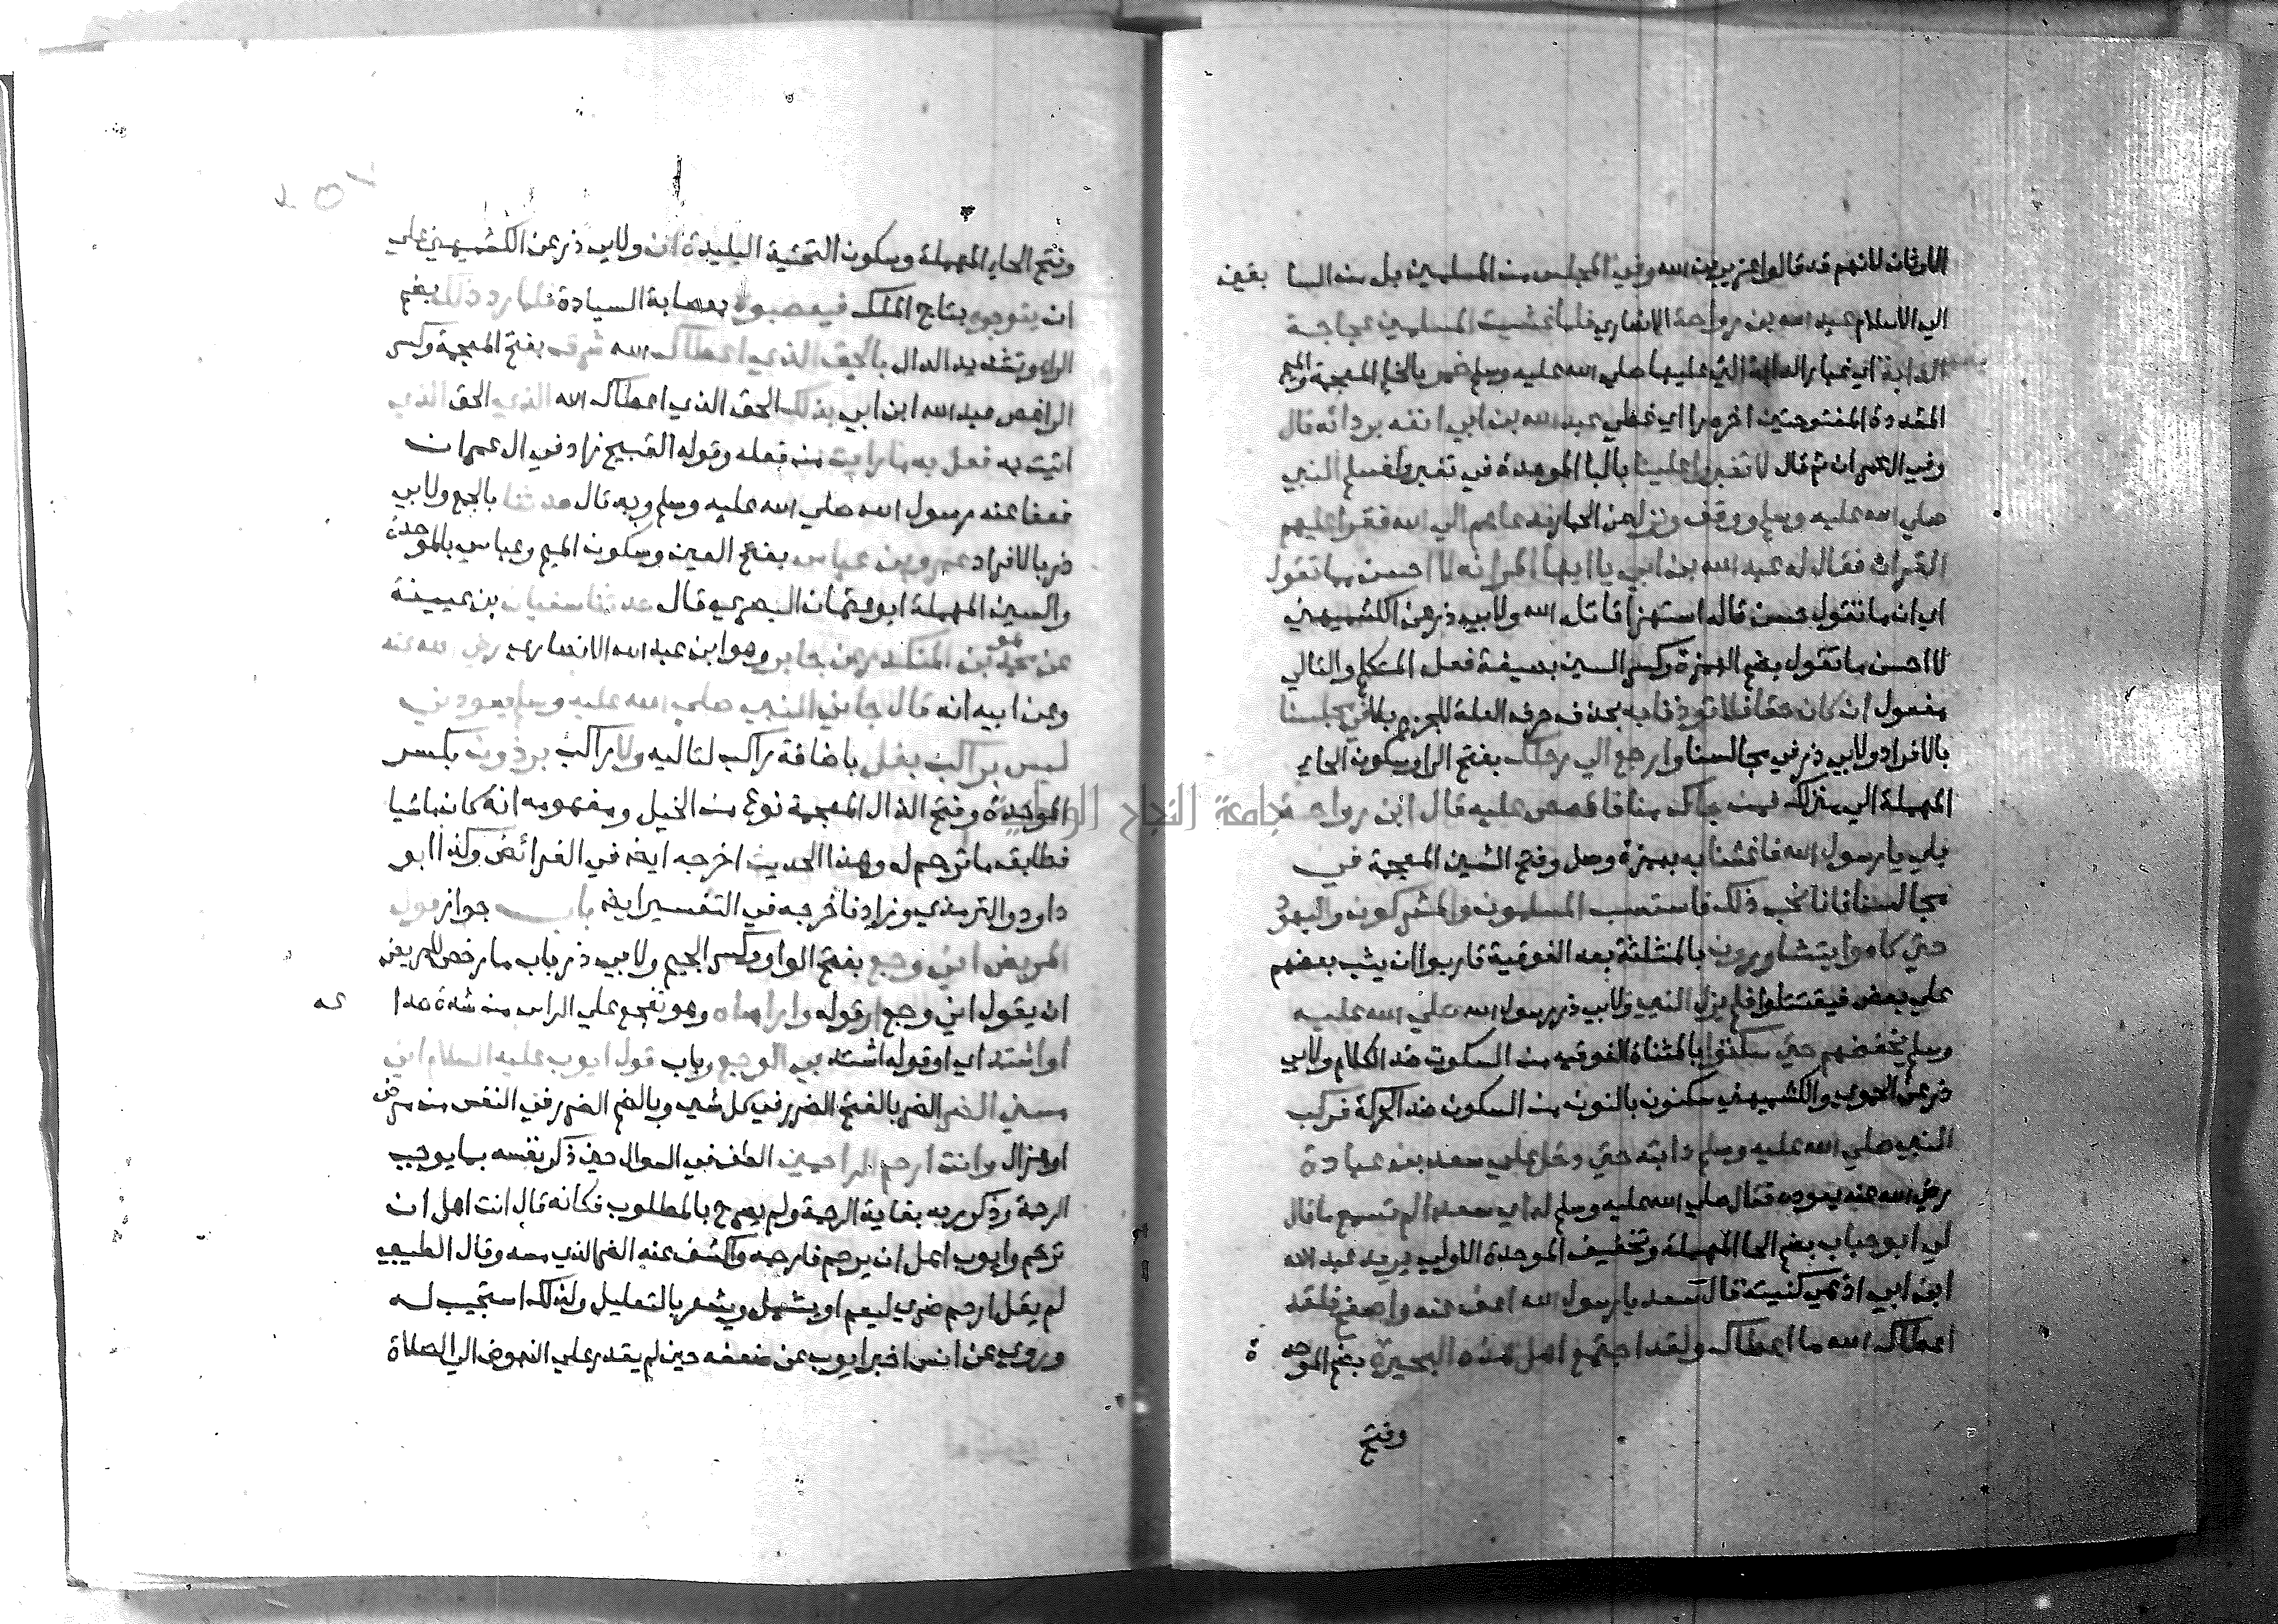 الاوثان لانهم قد قالوا عزير بن الله وفي المجلس من المسلمين بل من السا بقين
الي الاسلام عبد الله بن رواحة الانصاري فلما غشيت المسلمين عجاجة
الدابة اي غبار الدابة التي عليها صلي الله عليه وسلم خمر بالخا المعجمة والميم
المشددة المفتوحتين اخره را اي غطي عبد الله بن ابي انفه بردائه قال
وفي ال عمران ثم قال لا تغبروا علينا بالبا الموحدة في تغبروا فسلم النبي
صلي الله عليه وسلم ووقف ونزل عن الحمار فدعاهم الي الله فقرا عليهم
القران فقال له عبد الله بن ابي يا ايها المرا انه لا احسن مما تقول
اي ان ما تقول حسن قاله استهزا قاتله الله ولابي ذر عن الكشميهني
لا احسن ما تقول بضم الهمزة وكسر السين بصيغة فعل المتكلم والتالي
مفعول ان كان حقا فلا توذنا به بحذف حرف العلة للجزم بلا في مجلسنا
بالافراد ولابي ذر في مجالسنا وارجع الي رحلك بفتح الرا وسكون الحاء
المهملة الي منزلك فمن جاك منا فاقصص عليه قال ابن رواحة
بلي يا رسول الله فاغشنا به بهمزة وصل وفتح الشين المعجمة في
مجالسنا فانا نحب ذلك فاستب المسلمون والمشركون واليهود
حتي كادوا يتثاورون بالمثلثة بعد الفوقية قاربوا ان يثب بعضهم
علي بعض فيقتتلوا فلم يزل النبي ولابي ذر رسول الله صلي الله عليه
وسلم يخفضهم حتي سكتوا بالمثناة الفوقيه من السكوت ضد الكلام ولابي
ذر عن الحموي والكشميهني سكنون بالنون من السكون ضد الحركة فركب
النبي صلي الله عليه وسلم دابته حتي دخل علي سعد بن عبادة
رضي الله عنه يعوده فقال صلي الله عليه وسلم له اي سعد الم تسمع ما قال
لي ابو حباب بضم الحا المهملة وتخفيف الموحدة الاولي يريد عبد الله
ابن ابي اذ هي كنيته قال سعد يا رسول الله اعف عنه واصفح فلقد
اعطاك الله ما اعطاك ولقد اجتمع اهل هذه البحيرة بضم الموحدة
وفتح
وفتح الحاء المهملة وسكون التحتية البليدة ان ولابي ذر عن الكشميهني علي
ان يتوجوه بتاج الملك فيعصبوه بعصابة السيادة فلما رد ذلك بضم
الراء وتشديد الدال بالحق الذي اعطاك الله شرق بفتح المعجمة وكسر
الرا غص عبد الله ابن ابي بذلك الحق الذي اعطاك الله الذي الحق الذي
اتيت به فعل به ما رايت من فعله وقوله القبيح زاد في ال عمران
فعفا عنه رسول الله صلي الله عليه وسلم وبه قال حدثنا بالجمع ولابي
ذر بالافراد عمرو بن عباس بفتح العين وسكون الميم وعباس بالموحدة
والسين المهملة ابو عثمان البصري قال حدثنا سفيان بن عيينة
عن محمد هو بن المنكدر عن جابر وهو ابن عبد الله الانصاري رضي الله عنه
وعن ابيه انه قال جاني النبي صلي الله عليه وسلم يعودني
ليس براكب بغل باضافة راكب لتاليه ولا راكب برذون بكسر
الموحدة وفتح الذال المعجمة نوع من الخيل ومفهومه انه كان ماشيا
فطابقه ما ترجم له وهذا الحديث اخرجه ايضه في الفرائض وكذا ابو
داود والترمذي وزاد فاخرجه في التفسير ايضه باب جواز قول
المريض اني وجع بفتح الواو وكسر الجيم ولابي ذر باب ما رخص للمريض
ان يقول اني وجع او قوله وا راساه وهو تفجع علي الراس من شدة صدا عه
او اشتد اي او قوله اشتد بي الوجع وباب قول ايوب عليه السلام اني
مسني الضر الضر بالفتح الضرر في كل شي وبالضم الضرر في النفس من مرض
او هزال وانت ارحم الراحمين الطف في السوال حين ذكر نفسه بما يوجب
الرحمة وذكر ربه بغاية الرحمة ولم يصرح بالمطلوب فكانه قال انت اهل ان
ترحم وايوب اهل ان يرحم فارحمه واكشف عنه الضر الذي مسه وقال الطيبي
لم يقل ارحم ضري ليعم او يشمل ويشعر بالتعليل ولذلك استجيب له
وروي عن انس اخبر ايوب عن ضعفه حين لم يقدر علي النهوض الي الصلاة
جامعة النجاح الوطنية